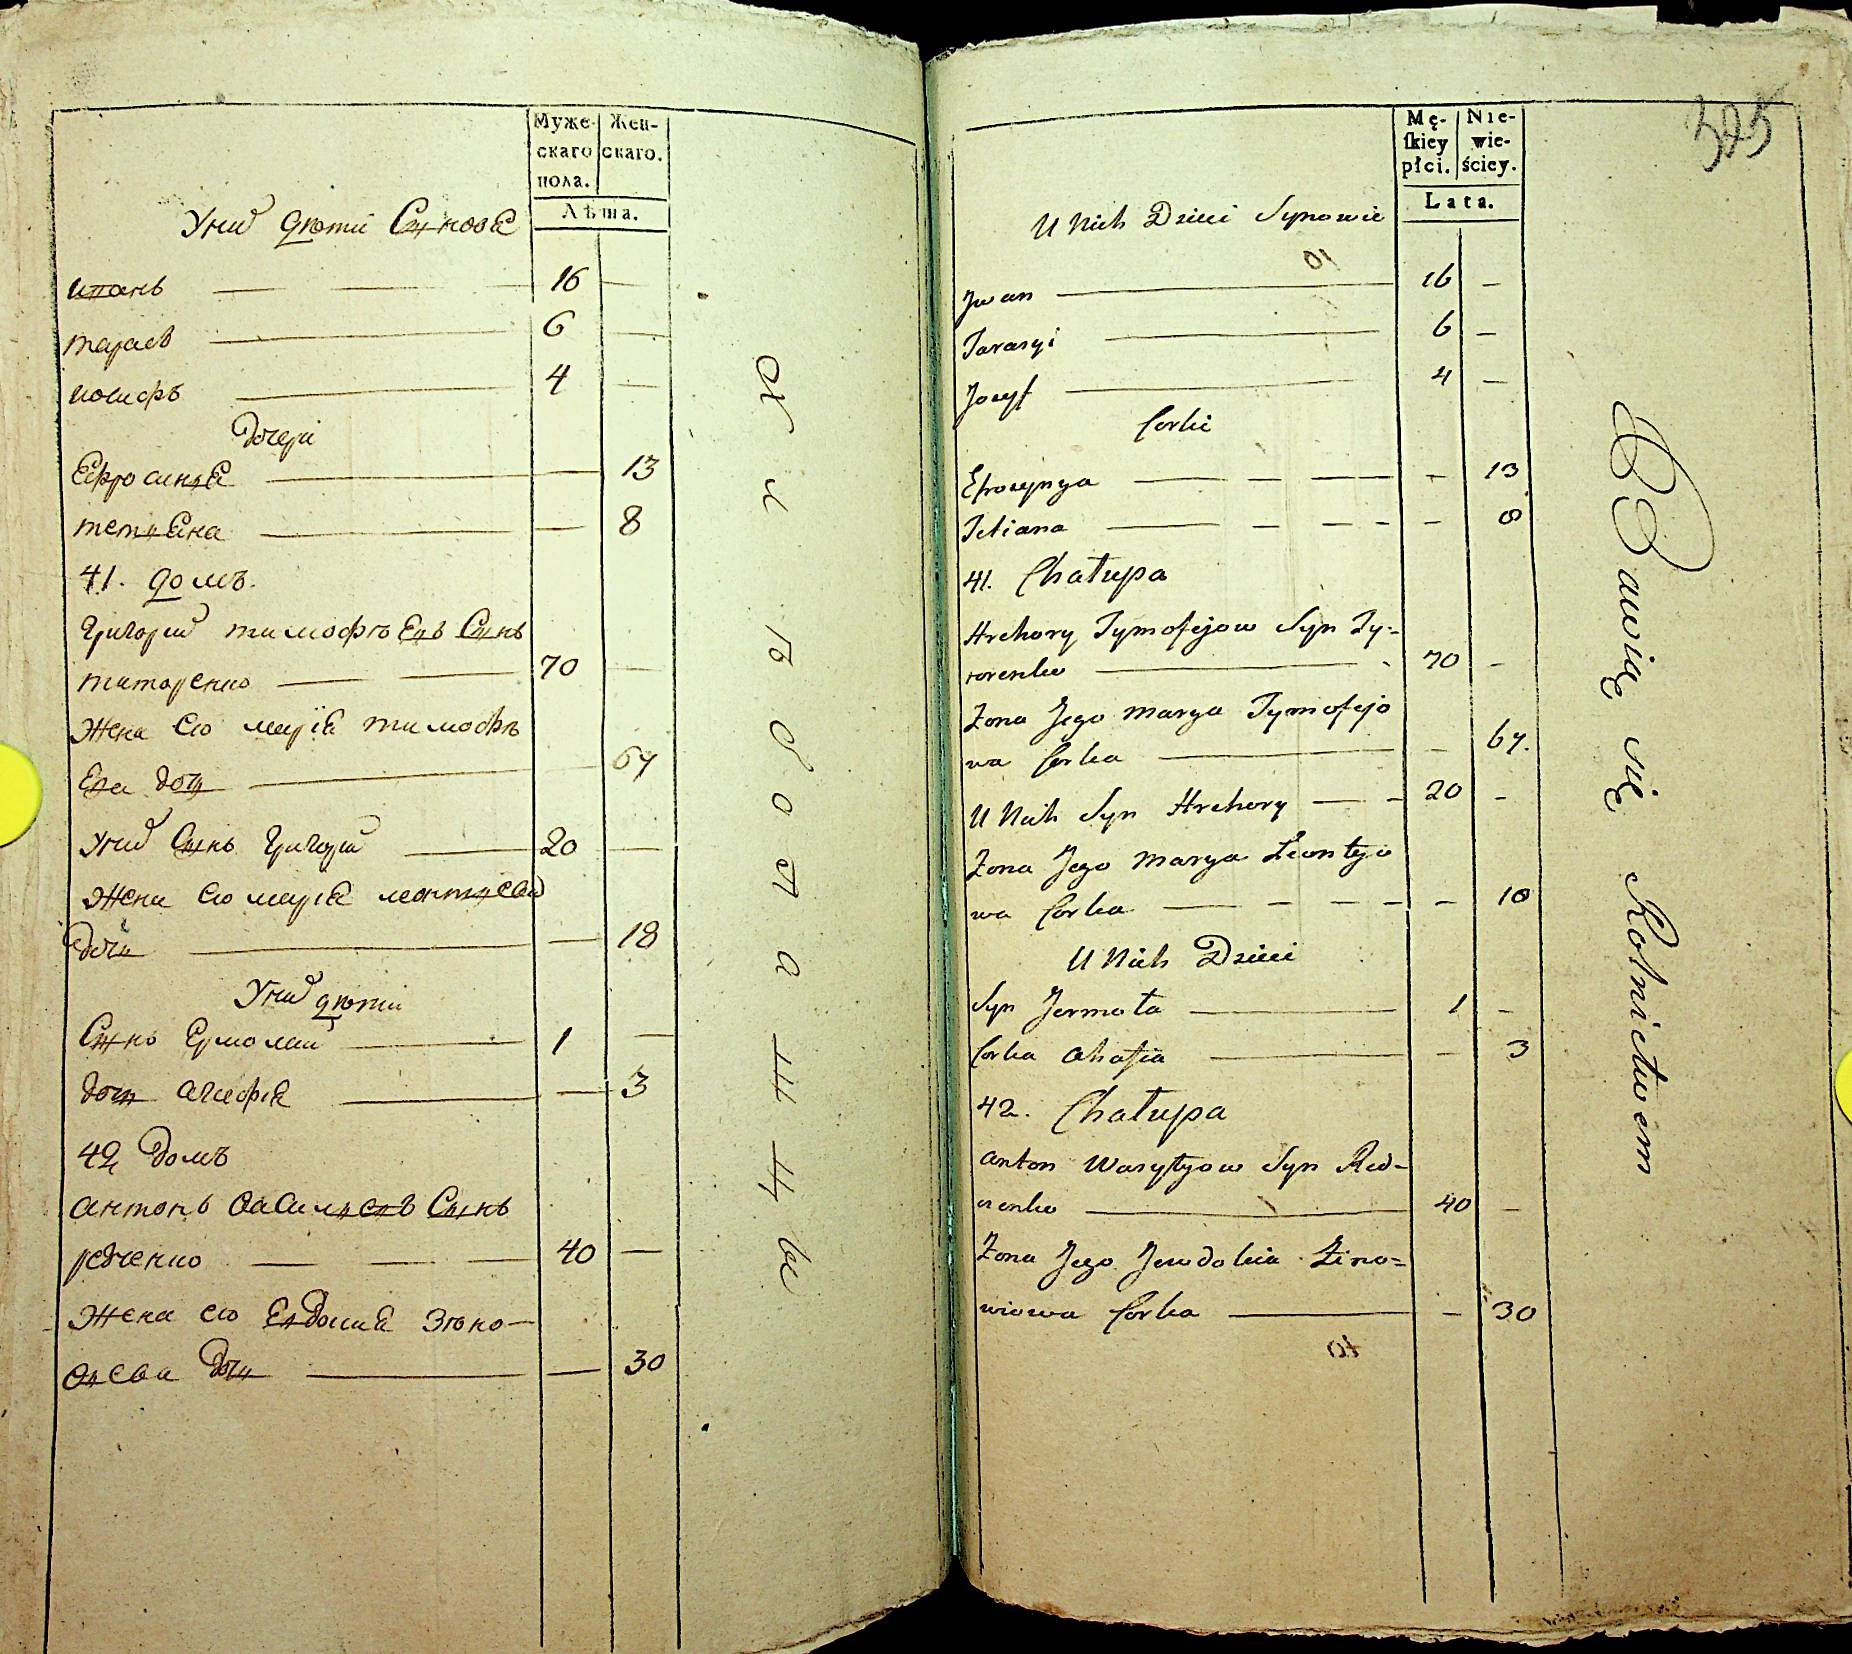 Муже-
скаго
пола.
Жен-
скаго.
Лѣта.
Уних дѣти Сынове
иванъ — — — 16 —
тарасъ — 6 —
иосифъ — 4 —
дочери
Ефросиние — — 13
тетиена — — 8
41. домъ.
Григорий тимофѣевъ Сынъ
титаренко — — 70 —
Жена его мария тимофѣ
ева дочь — 67
Уних Сынъ Григорий — 20 —
Жена его мария леонтиева
дочь — — 18
Уних дѣти
Сынъ Ермолай — 1 —
дочь агафия — — 3
42 домъ
антонъ василиевъ Сынъ
редченко — — — 40 —
Жена его Евдокия Зѣно-
виева дочь — — 30
Mę-
ſkiey
płci.
Nie-
wie-
ściey.
Lata.
325
U Nich Dzieci Synowie
Jwan — 16 —
Tarasyi — 6 —
Jozyf — 4 —
Corki
Efrozynya — — — — 13
Tetiana — — — — — 8
41. Chałupa
Hrehory Tymofejow Syn Ty-
torenko — 70 —
Zona Jego Marya Tymofejo
wa Corka — — 67.
U Nich Syn Hrehory — — 20 —
Zona Jego Marya Leontyjo
wa Corka — — — — — 18
U Nich Dzieci
Syn Jermoła — 1 —
Corka Ahafia — — 3
42. Chałupa
Anton Wasylyow Syn Red-
czenko — 40 —
Zona Jego Jewdokia Zino=
wiowa Corka — — 30
Bawią się Rolnictwem